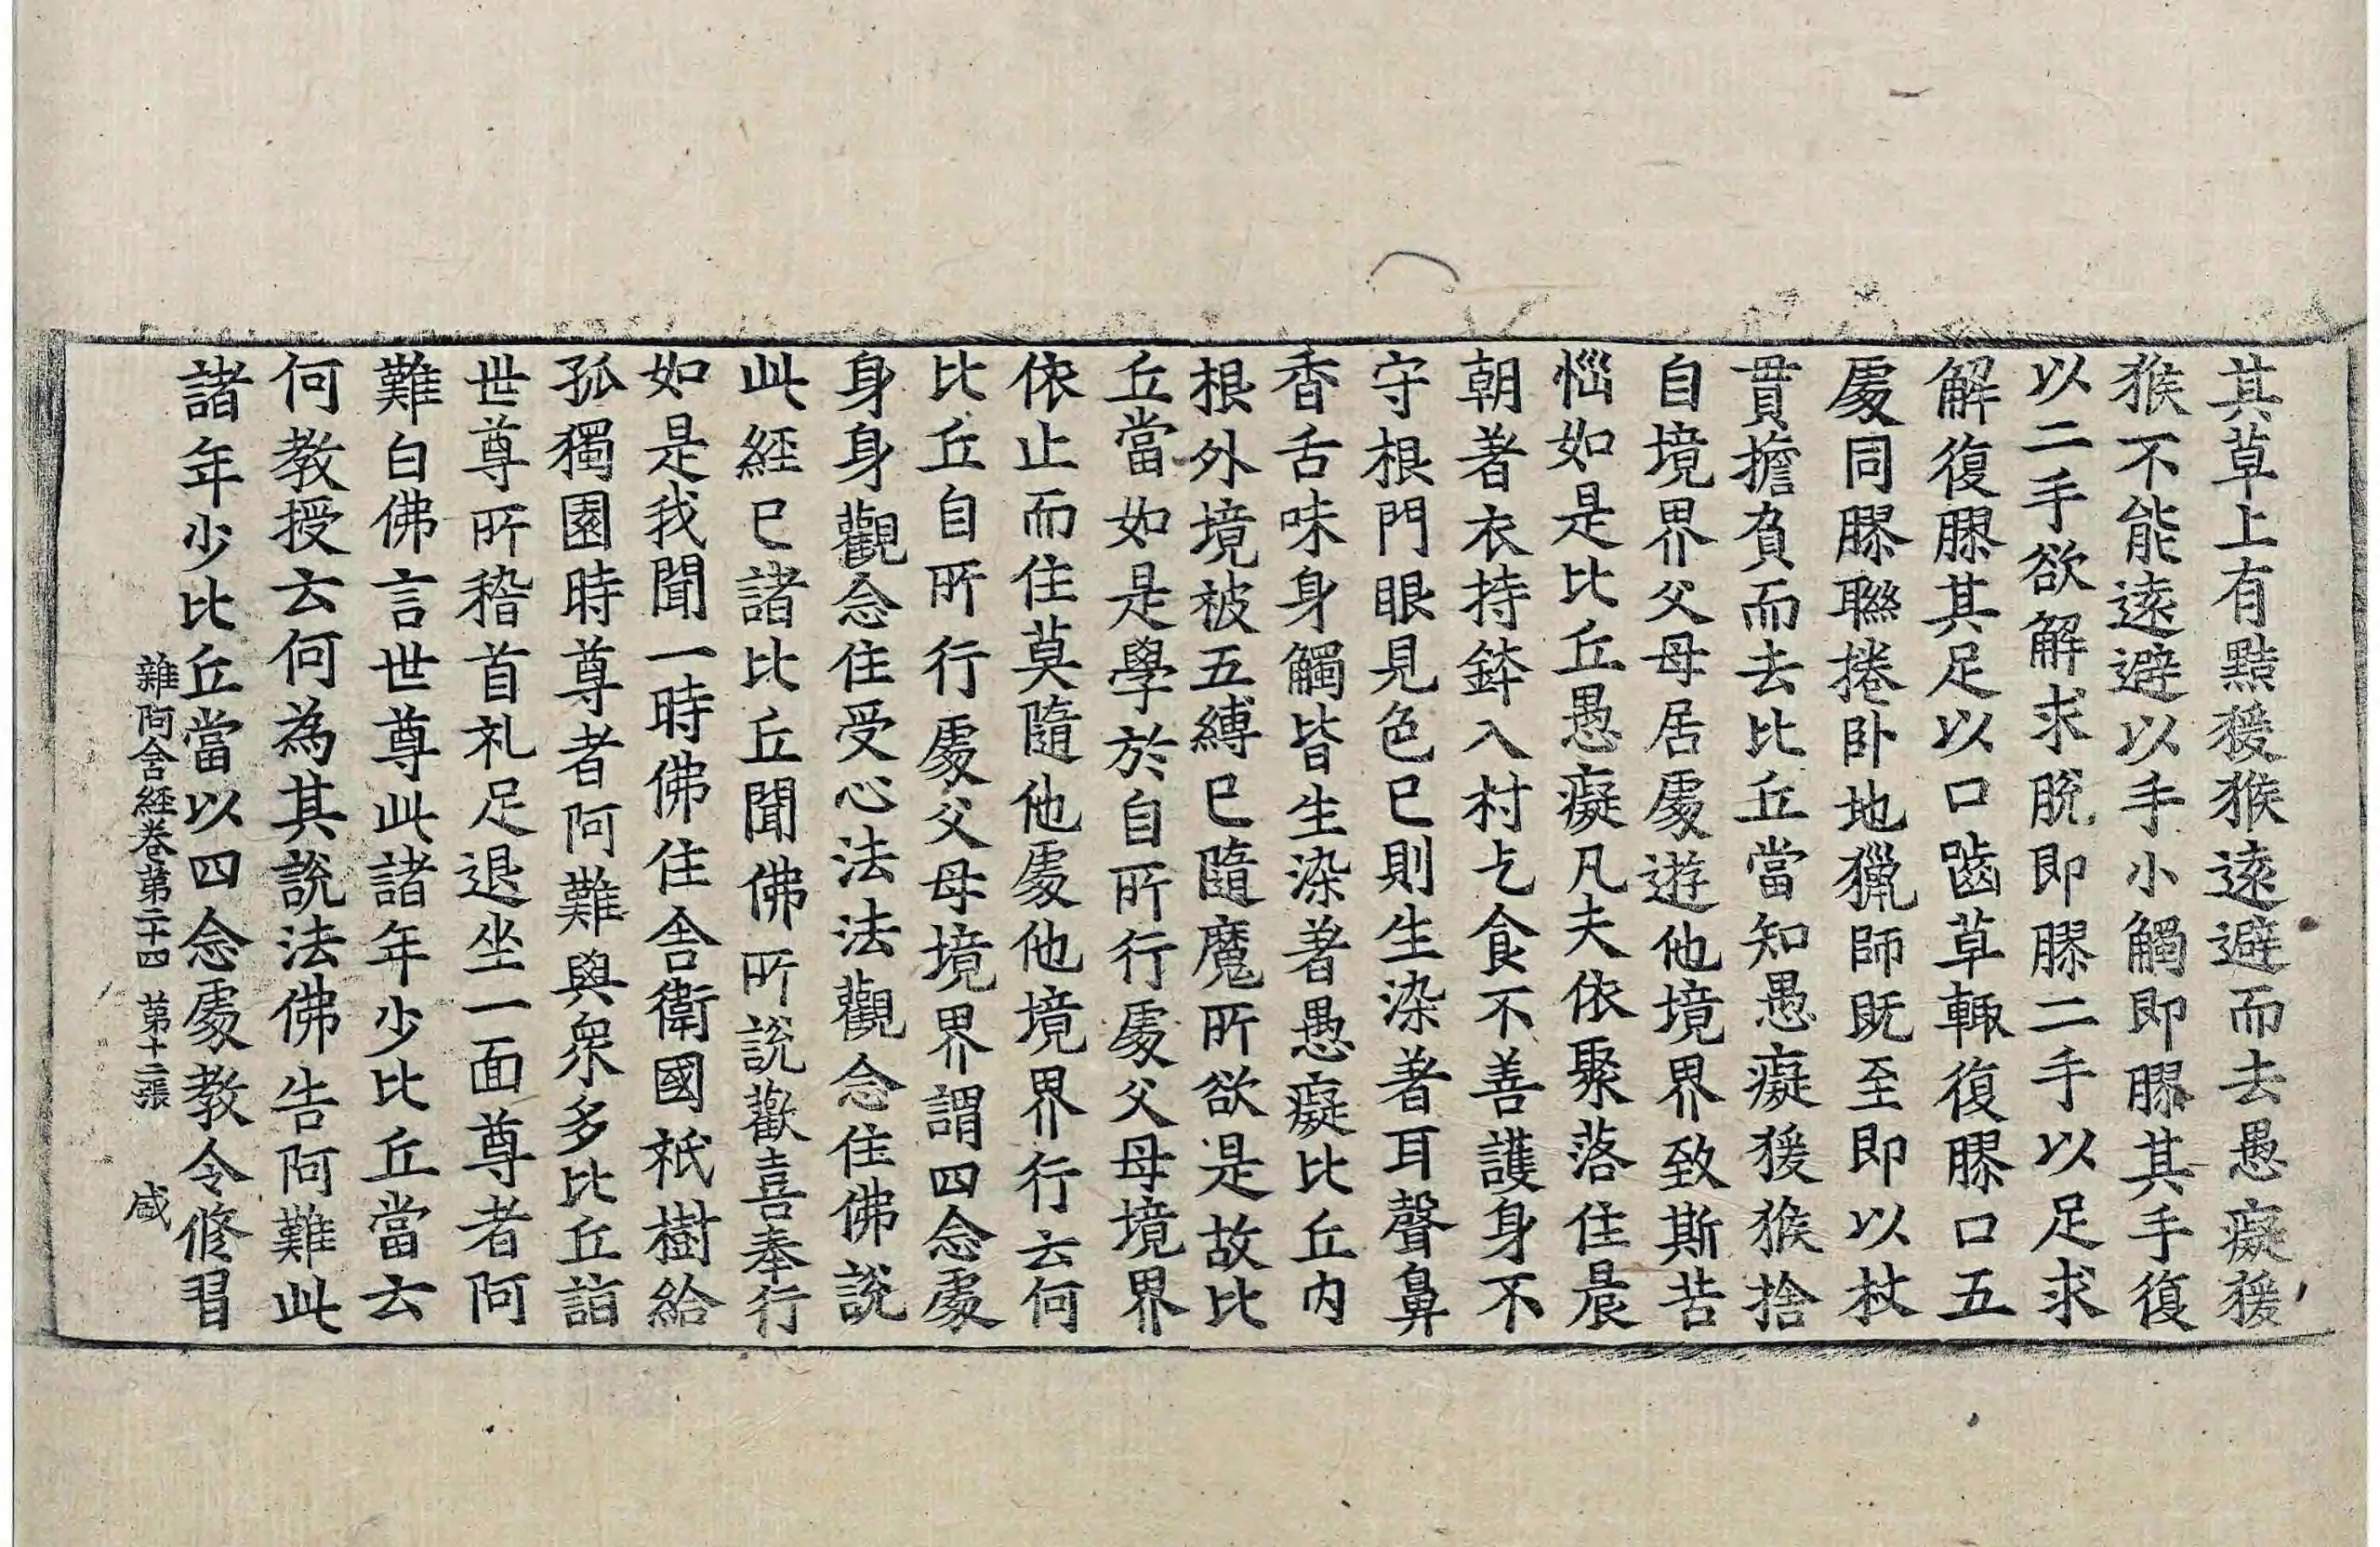 其草上有黠猨猴遠避而去愚癡猨
猴不能遠避以手小觸即膠其手復
以二手欲解求脫即膠二手以足求
解復膠其足以口嚙草輙復膠口五
處同膠聮捲卧地獵師既至即以杖
貫擔負而去比丘當知愚癡猨猴捨
自境界父母居處遊他境界致斯苦
惱如是比丘愚癡凡夫依聚落住晨
朝著衣持鉢入村乞食不善護身不
守根門眼見色已則生染著耳聲鼻
香舌味身觸皆生染著愚癡比丘内
根外境被五縛已隨魔所欲是故比
丘當如是學於自所行處父母境界
依止而住莫隨他處他境界行云何
比丘自所行處父母境界謂四念處
身身觀念住受心法法觀念住佛說
此經已諸比丘聞佛所說歡喜奉行
如是我聞一時佛住舍衛國祇樹給
孤獨園時尊者阿難與衆多比丘詣
世尊所稽首礼足退坐一面尊者阿
難白佛言世尊此諸年少比丘當云
何教授云何為其說法佛告阿難此
諸年少比丘當以四念處教令修習
雜阿含經卷第二十四 第十二張 咸